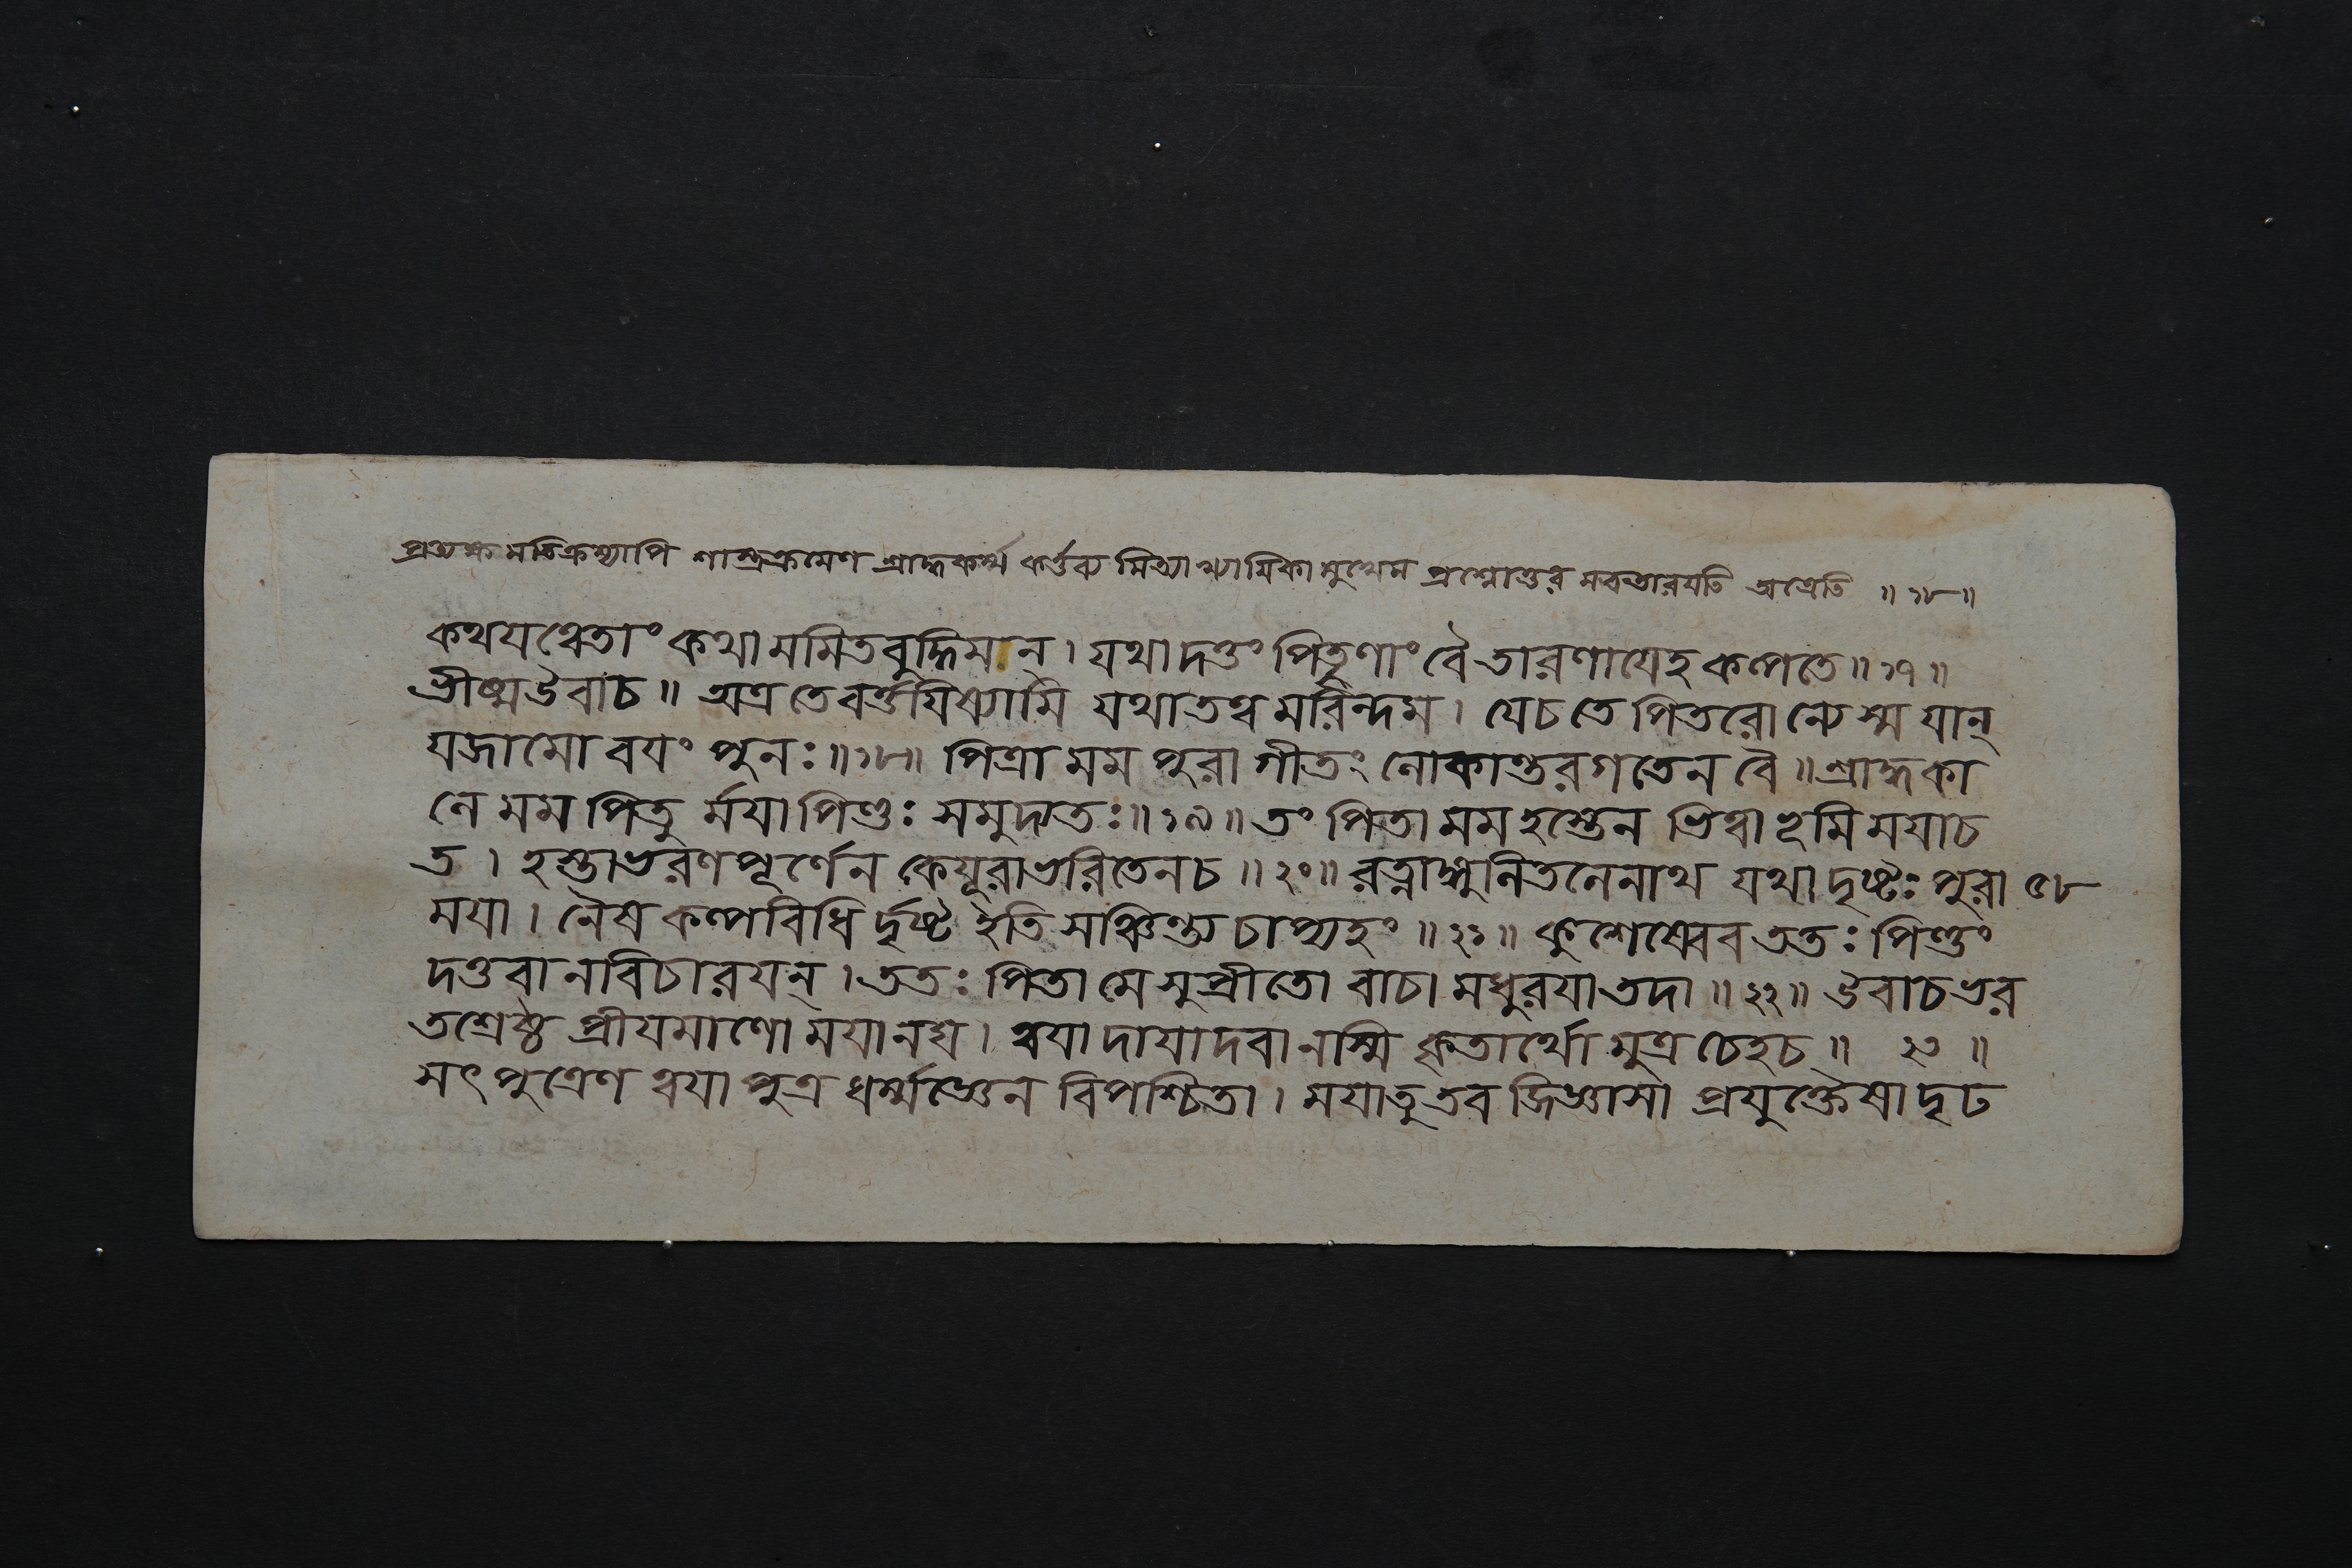 প্রত্যক্ষমতিক্রম্যাপি শাস্ত্রক্রমেণ শ্রাদ্ধকর্ম্ম কর্ত্তব্য মিত্যাখ্যায়িকা মুখেন প্রশ্নোত্তর মবতারযতি অত্রেতি ॥ ১৮ ॥
কথযত্বেতাং কথা মমিতবুদ্ধিমান্ । যথা দত্তং পিতৄণাং বৈ তারণাযেহ কল্পতে ॥ ১৭ ॥
ভীষ্মউবাচ ॥ অত্র তে বর্ত্তযিষ্যামি যথাতত্ব মরিন্দম । যেচ তে পিতরোন্যে স্ম যান্
যজামো বযং পুনঃ ॥ ১৮ ॥ পিত্রা মম পুরা গীতং লোকান্তরগতেন বৈ ॥ শ্রাদ্ধকা
লে মম পিতু র্মযা পিণ্ডঃ সমুদ্যতঃ ॥ ১৯ ॥ তং পিতা মম হস্তেন ভিত্বা ভূমি মযাচ
ত । হস্তাভরণপূর্ণেন কেযূরাভরিতেনচ ॥ ২০ ॥ রত্নাঙ্গুলিতলেনাথ যথা দৃষ্টঃ পুরা ৫৮
মযা । নৈষ কল্পবিধি র্দৃষ্ট ইতি সঞ্চিন্ত্য চাপ্যহং ॥ ২১ ॥ কুশেষ্বেব ততঃ পিণ্ডং
দত্তবা নবিচারযন্ । ততঃ পিতা মে সুপ্রীতো বাচা মধুরযা তদা ॥ ২২ ॥ উবাচ ভর
তশ্রেষ্ঠ প্রীযমাণো মযানঘ । ত্বযা দাযাদবা নস্মি কৃতার্থো মুত্র চেহচ ॥ ২৩ ॥
সৎপুত্রেণ ত্বযা পুত্র ধর্ম্মজ্ঞেন বিপশ্চিতা । মযাতু তব জিজ্ঞাসা প্রযুক্তৈষা দৃঢ